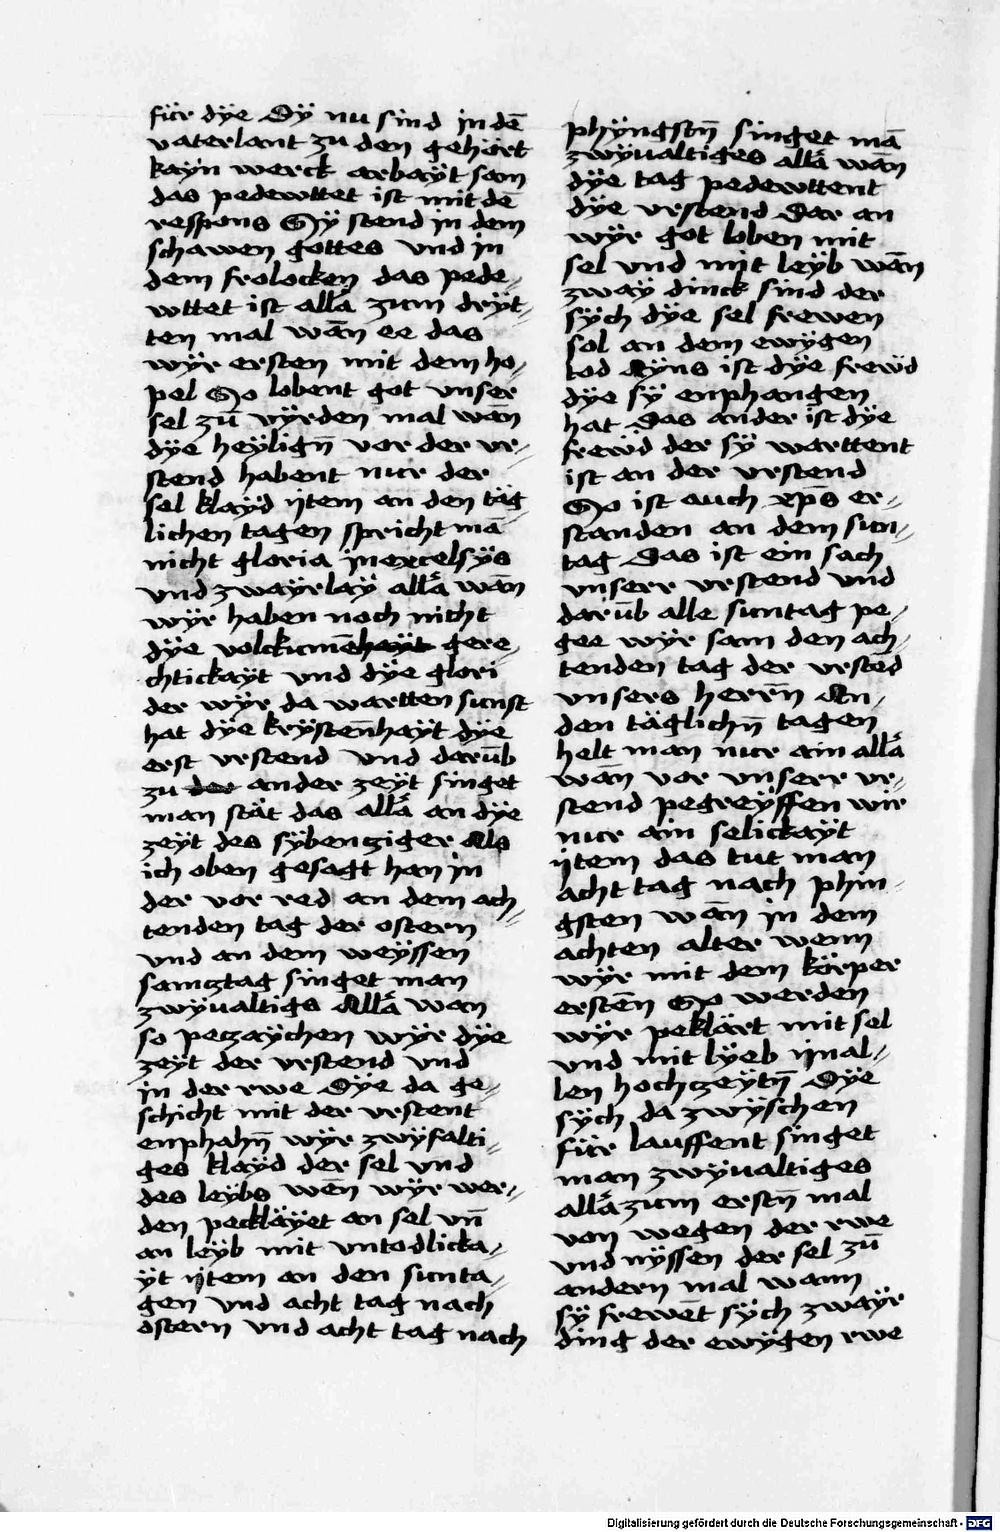 für dÿe Dÿ nu sind in dē
vaterlant zu den gehört
kayn werck arbaÿt sam
das pedewttet ist mit dē
respons Sÿ stend in dem
schawen gottes vnd in
dem frolocken das pede⸗
wttet ist allā zum drÿt⸗
ten mal wān ee das
wÿr ersten mit dem ho⸗
pel So lobent got vnser
sel zū vÿrden mal wān
dÿe heÿlign̄ vor der vr⸗
stend habent nur der
sel klaÿd ijtem an den täg
lichen tagen spricht mā
nicht gloria in excelsÿs
vnd zwaÿrlaÿ allā wān
wÿr haben noch nicht
dÿe volckumēhaÿt gere⸗
chtickaÿt vnd dÿe glori
der wÿr da wartten sunst
hat dÿe krÿstēnhaÿt dÿe
erst vrstend vnd darūb
zu der ander zeÿt singet
man stät das allā an dÿe
zeÿt des sÿbenziger Als
ich oben gesagt han in
der vor red an dem ach⸗
tenden tag der ostern
vnd an dem weÿssen
samztag singet man
zwÿualtigs Allā wan
so pezaÿchen wÿr dÿe
zeÿt der vrstend vnd
in der rwe Dÿe da ge⸗
schicht mit der vrstent
enphahn̄ wÿr zwÿfalti⸗
ges klaÿd der sel vnd
des leÿbs wēn wÿr wer⸗
den peckläÿet an sel vn̄
an leÿb mit vntodlicka⸗
ÿt ijtem an den sunta⸗
gen vnd acht tag nach
ostern vnd acht tag nach
phÿngstn̄ singet mā
zwÿualtiges allā wān
dÿe tag pedewttent
dÿe vrstend Dar an
wÿr got loben mit
sel vnd mit leÿb wān
zwaÿ dinck sind der
sÿch dÿe sel frewen
sol an dem ewÿgen
tod Aÿns ist dÿe frewd
dÿe sÿ enphangen
hat Das ander ist dÿe
frewd der sÿ warttent
ist an der vrstend
So ist auch xp̄s er⸗
standen an dem sun⸗
tag Das ist ein sach
vnserr vrstend vnd
darūb alle suntag pe⸗
gee wÿr sam den ach⸗
tenden tag der vrstēd
vnsers herrn̄ An⸗
den täglichn̄ tagen
helt man nur ain allā
wān vor vnserr vr⸗
stend pegreÿffen wir
nur ain selickaÿt
ijtem das tut man
acht tag nach phin⸗
gsten wān in dem
achten alter wenn
wÿr mit dem körper
erstēn So werden
wÿr peklärt mit sel
vnd mit lÿeb ijnal⸗
len hochzeÿtn̄ Dÿe
sÿch da zwÿschen
für lauffent singet
man zwÿualtiges
allā zum erstn̄ mal
von wegen der rwe
vnd nÿssen der sel zū
andern mal wann
sÿ frewēt sÿch zwaÿr
ding der ewÿgen rwe
Digitalisierung gefördert durch die Deutsche Forschungsgemeinschaft - DFG